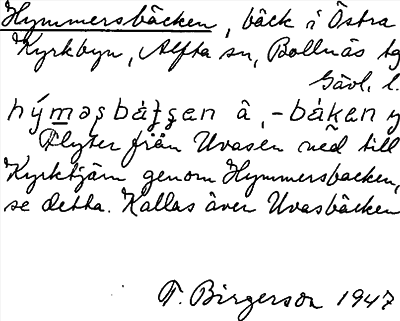 Hymmersbäcken, bäck i Östra
Kyrkbyn, Alfta sn, Bollnäs tg
Gävl. l.
hým̲əʂbát̡ʂ̡en â, -báken y
Flyter från Uvasen ned till
Kyrktjärn genom Hymmersbacken,
se detta. Kallas även Uvasbäcken
T. Birgerson 1947